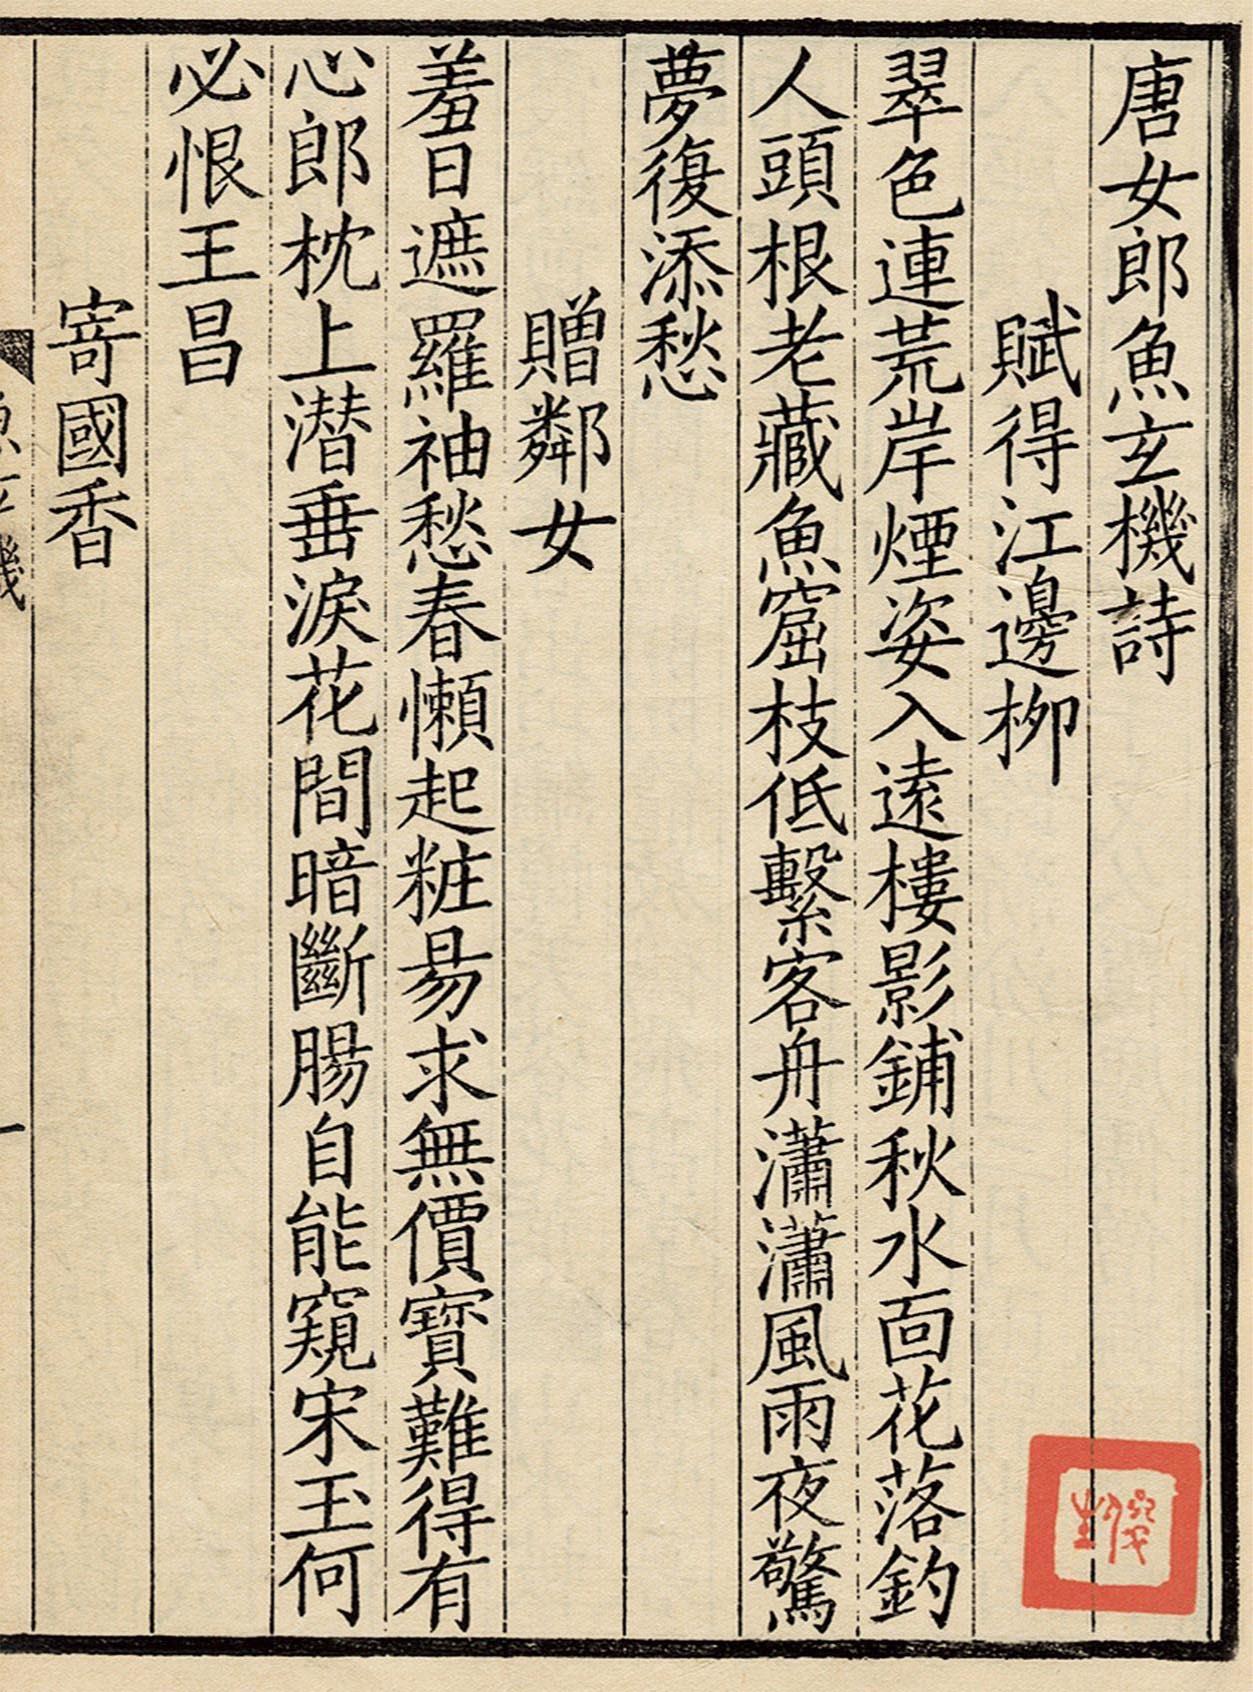 唐女郎魚玄機詩
賦得江邊柳
翠色連荒岸煙姿入遠樓影鋪秋水面花落釣
人頭根老藏魚窟枝低繫客舟瀟瀟風雨夜驚
夢復添愁
贈鄰女
羞日遮羅袖愁春懶起粧昜求無價寶難得有
心郎枕上潜垂淚花間暗斷腸自能窺宋玉何
必恨王昌
寄國香
魚玄機
一